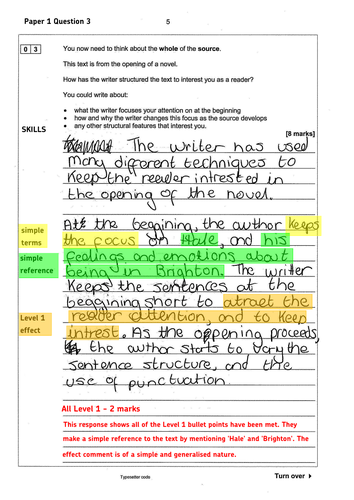 Paper 1 Question 3
5
0 3
You now need to think about the whole of the source.
This text is from the opening of a novel.
How has the writer structured the text to interest you as a reader?
You could write about:
• what the writer focuses your attention on at the beginning
• how and why the writer changes this focus as the source develops
• any other structural features that interest you.
[8 marks]
SKILLS
The writer has used
many different techniques to
keep the reader intrested in
the opening of the novel.
At the beggining, the author keeps
the focus on Hale, and his
feelings and emotions about
being in Brighton. The writer
keeps the sentences at the
beggining short to atract the
reader attention, and to keep
intrest. As the oppening proceeds,
the author starts to vary the
sentence structure, and the
use of punctuation.
simple
terms
simple
reference
Level 1
effect
All Level 1 – 2 marks
This response shows all of the Level 1 bullet points have been met. They
make a simple reference to the text by mentioning 'Hale' and 'Brighton'. The
effect comment is of a simple and generalised nature.
Typesetter code
Turn over ►